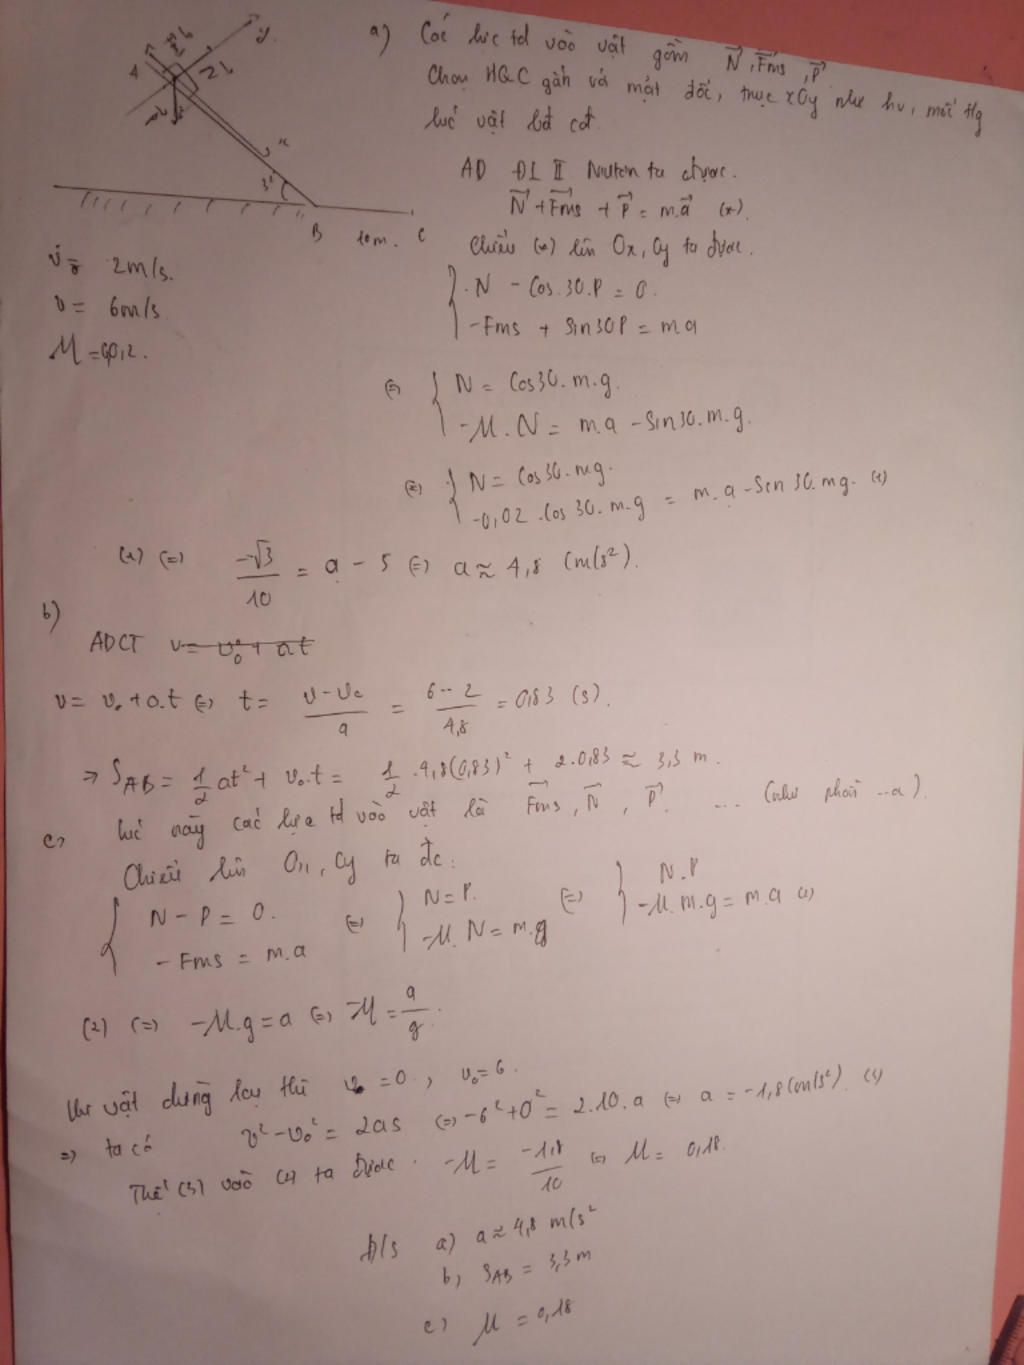 a) Các lực td vào vật gồm N⃗, F⃗ms, P⃗
Chọn HQC gắn và mặt đất, trục xOy như hv, mốc tg
lúc vật bđ cđ.
AD ĐL II Niuton ta được.
N⃗ + F⃗ms + P⃗ = m.a⃗ (*).
Chiếu (*) lên Ox, Oy ta được.
N - Cos.30.P = 0.
-Fms + Sin30P = m.a
A
y
x
30
B 10m. C
v₀ = 2m/s.
v = 6m/s
(=) N = Cos30.m.g.
-μ.N = m.a - Sin30.m.g.
(=) N = Cos30.mg.
-0,02.Cos30.m.g = m.a - Sin30.mg. (1)
(1) (=) -√3/10 = a - 5 (=) a ≈ 4,8 (m/s²).
b)
ADCT v = v₀ + at
v = v₀ + a.t (=) t = (v - v₀)/a = (6 - 2)/4,8 = 0,83 (s).
=> SAB = 1/2 at² + v₀.t = 1/2 .4,8(0,83)² + 2.0,83 ≈ 3,3 m.
c, lúc này các lực td vào vật là F⃗ms, N⃗, P⃗. ... (như phần ..a).
Chiếu lên Ox, Oy ta đc:
N - P = 0. (=) N = P. (=) N.P
- Fms = m.a -μ.N = m.g -μ.m.g = m.a (2)
(2) (=) -μ.g = a (=) -μ = a/g.
vật dừng lại thì v = 0, v₀ = 6.
=> ta có v² - v₀² = 2as (=) -6² + 0² = 2.10.a (=) a = -1,8 (m/s²). (3)
Thế (3) vào (2) ta được. -μ = -1,8/10 (=) μ = 0,18.
Đ/s a) a ≈ 4,8 m/s²
b, SAB = 3,3 m
c) μ = 0,18